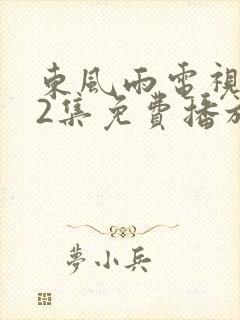 東風雨電視
2集免費播放
夢小兵